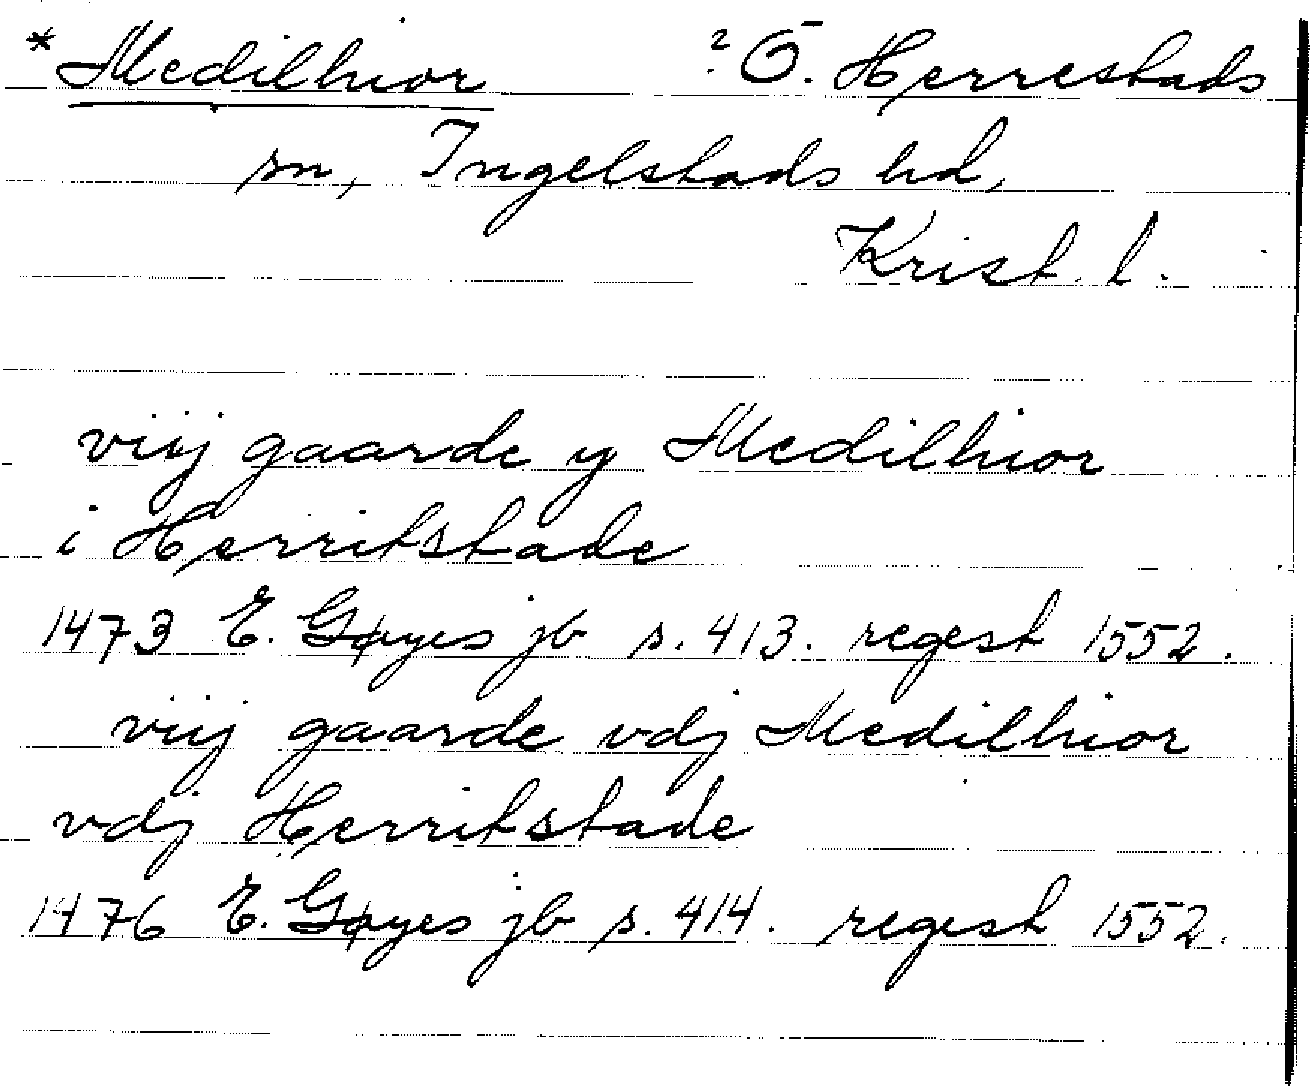 *Medilhior ? Ö. Herrestads
sn, Ingelstads hd,
Krist. l.
viij gaarde y Medilhior
i Herritstade
1473 E. Gøyes jb s. 413. regest 1552.
viij gaarde vdj Medilhior
vdj Herritstade
1476 E. Gøyes jb s. 414. regest 1552.